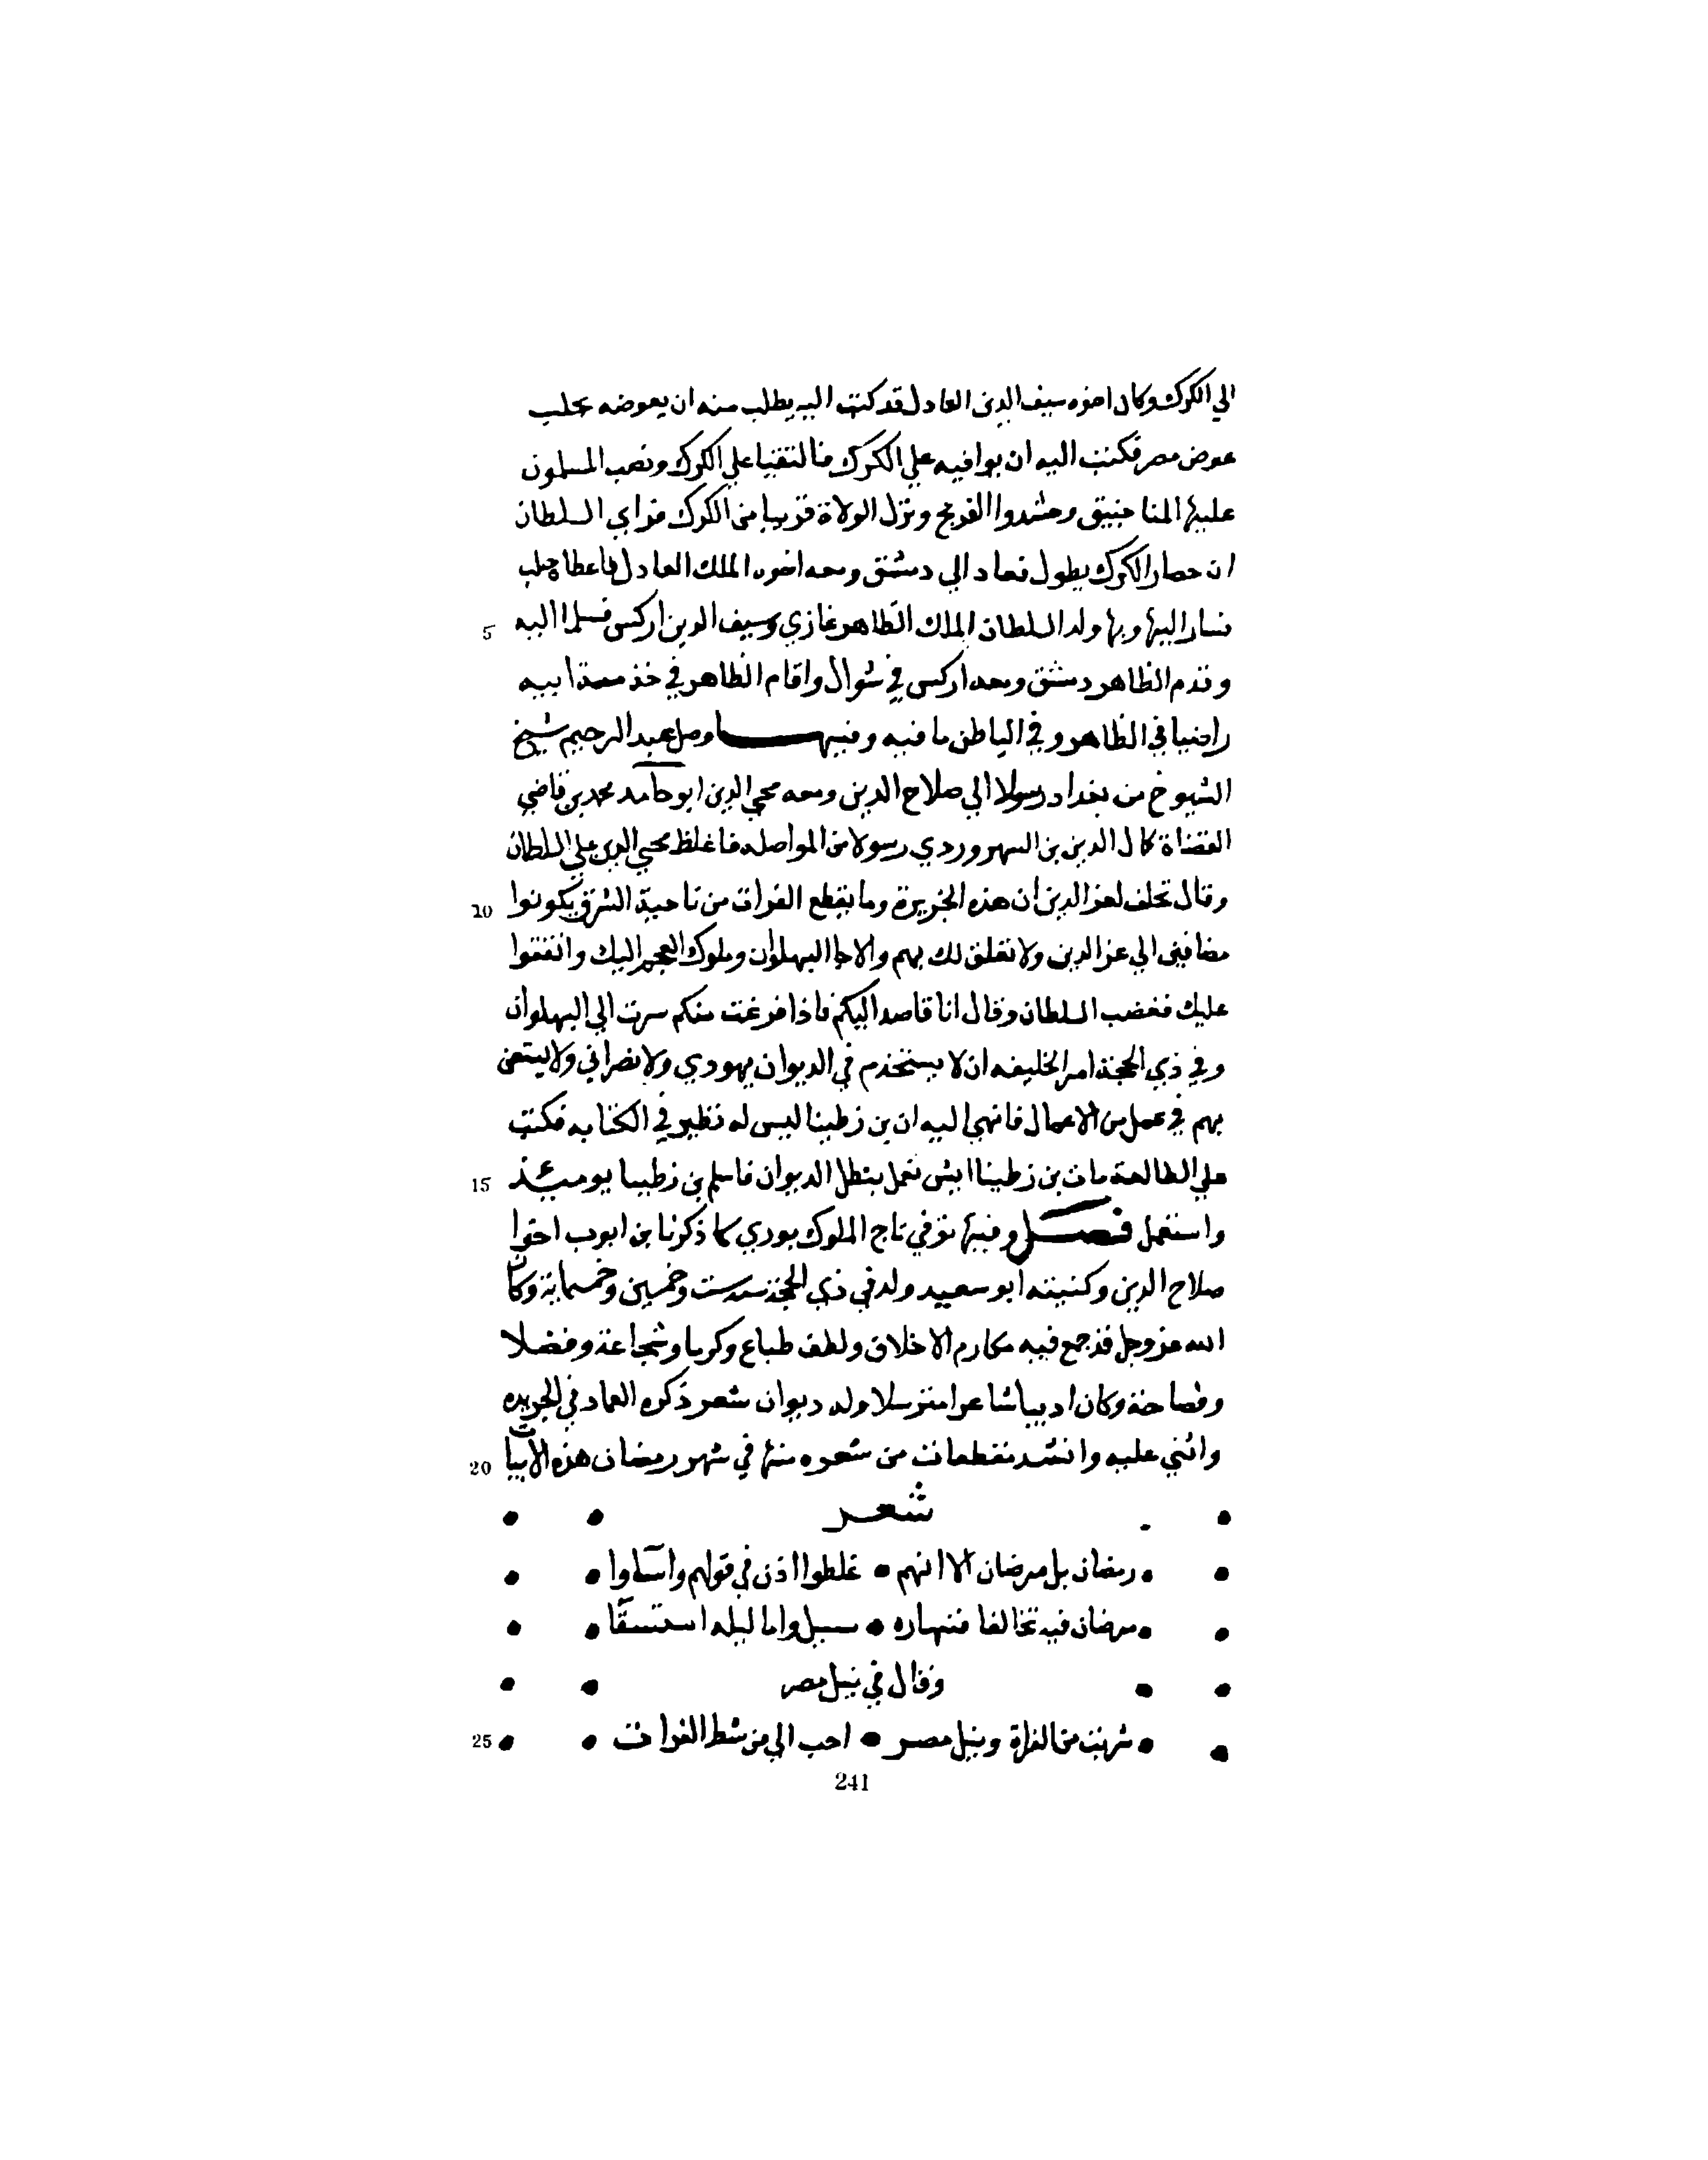 الي الكرك وكان اخوه سيف الدين العادل قد كتب اليه يطلب منه ان يعوضه بحلب
عوض مصر فكتب اليه ان يوافيه علي الكرك فالتقيا علي الكرك ونصب المسلمون
عليها المناجنيق وحشدوا الفرنج ونزل الولاة قريبا من الكرك فراي السلطان
ان حصار الكرك يطول فعاد الي دمشق ومعه اخوه الملك العادل فاعطاه حلب
5 فسار اليها وبها ولد السلطان الملك الظاهر غازي وسيف الدين اركس فسلما اليه
وقدم الظاهر دمشق ومعه اركس في شوال واقام الظاهر في خدمة ابيه
راضيا في الظاهر وفي الباطن ما فيه وفيها وصل عبد الرحيم شيخ
الشيوخ من بغداد رسولا الي صلاح الدين ومعه محيي الدين ابو حامد محمد بن قاضي
القضاة كمال الدين بن السهروردي رسولا من المواصله فاغلظ محيي الدين علي السلطان
10 وقال تحلف لعز الدين ان هذه الجزيرة وما يقطع الفرات من ناحية الشرق يكونوا
مضافين الي عز الدين ولا تعلق لك بهم والا جا البهلوان وملوك العجم اليك واتفقوا
عليك فغضب السلطان وقال انا قاصد اليكم فاذا فرغت منكم سرت الي البهلوان
وفي ذي الحجة امر الخليفه ان لا يستخدم في الديوان يهودي ولا نصراني ولا يستعن
بهم في عمل من الاعمال فانهي اليه ان بن زطينا ليس له نظير في الكتابه فكتب
15 علي المطالعة مات بن زطينا ايش نعمل يبطل الديوان فاسلم بن زطينا يوميئذ
واستعمل فصل وفيها توفي تاج الملوك بوري كما ذكرنا بن ايوب اخوا
صلاح الدين وكنيته ابو سعيد ولد في ذي الحجة سنة ست وخمسين وخمسماية وكان
الله عز وجل قد جمع فيه مكارم الاخلاق ولطف طباع وكرما وشجاعة وفضلا
وفصاحة وكان اديبا شاعرا مترسلا وله ديوان شعر ذكره العماد في الجريده
20 واثني عليه وانشد مقطعات من شعره منها في شهر رمضان هذه الابيات
شعر
رمضان بل مرضان الا انهم • غلطوا اذن في قولهم واساوا
مرضان فيه تخالفا فنهاره • سل واما ليله استسقا
وقال في نيل مصر
25 شربت من الفراة ونيل مصر • احب الي من شط الفرات
241